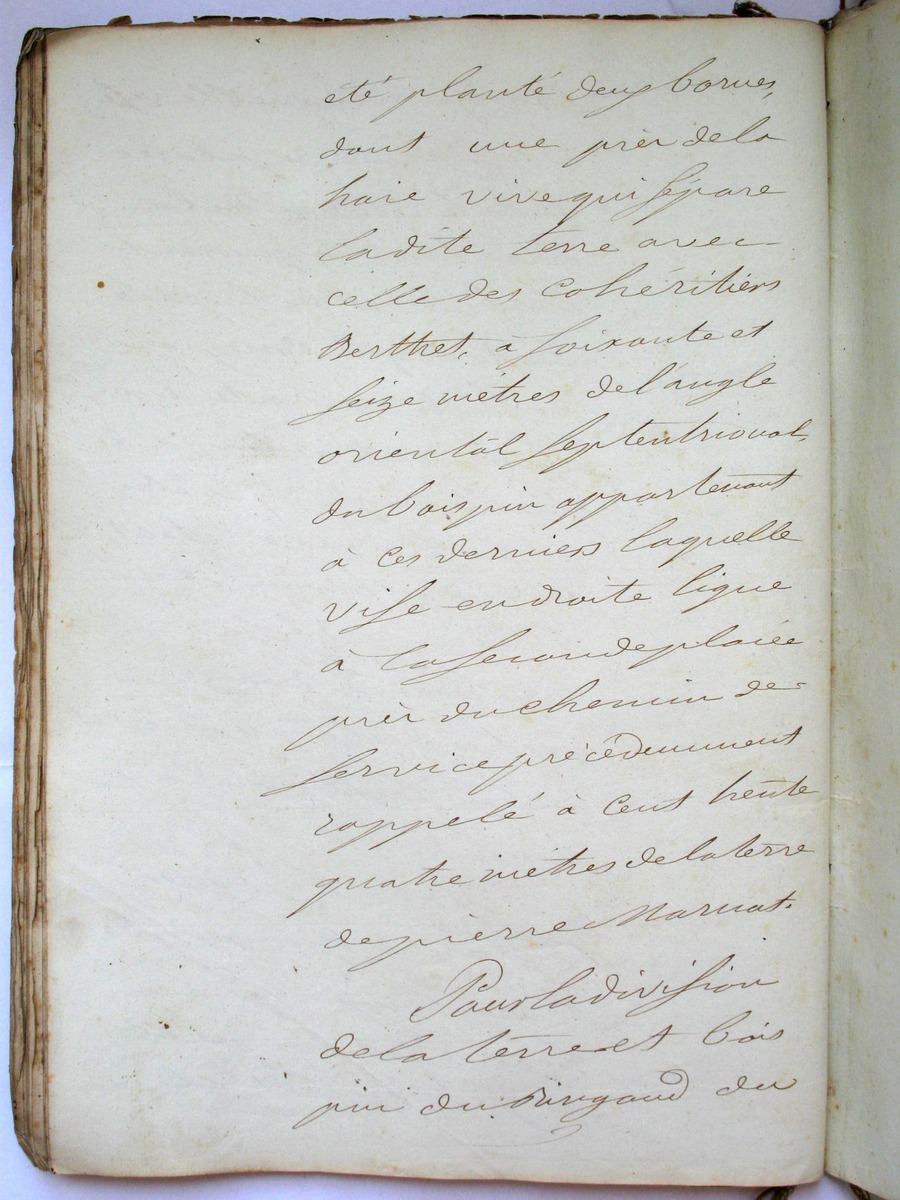 été planté deux bornes,
dont une près de la
haie vive qui sépare
ladite terre avec
celle des cohéritiers
Berthet, à soixante et
seize mètres de l'angle
oriental septentrional
du bois pin appartenant
à ces derniers laquelle
vise en droite ligne
à la seconde placée
près du chemin de
service précédemment
rappelé à cent trente
quatre mètres de la terre
de pierre Marnat.
Pour la division
de la terre et bois
pin du du